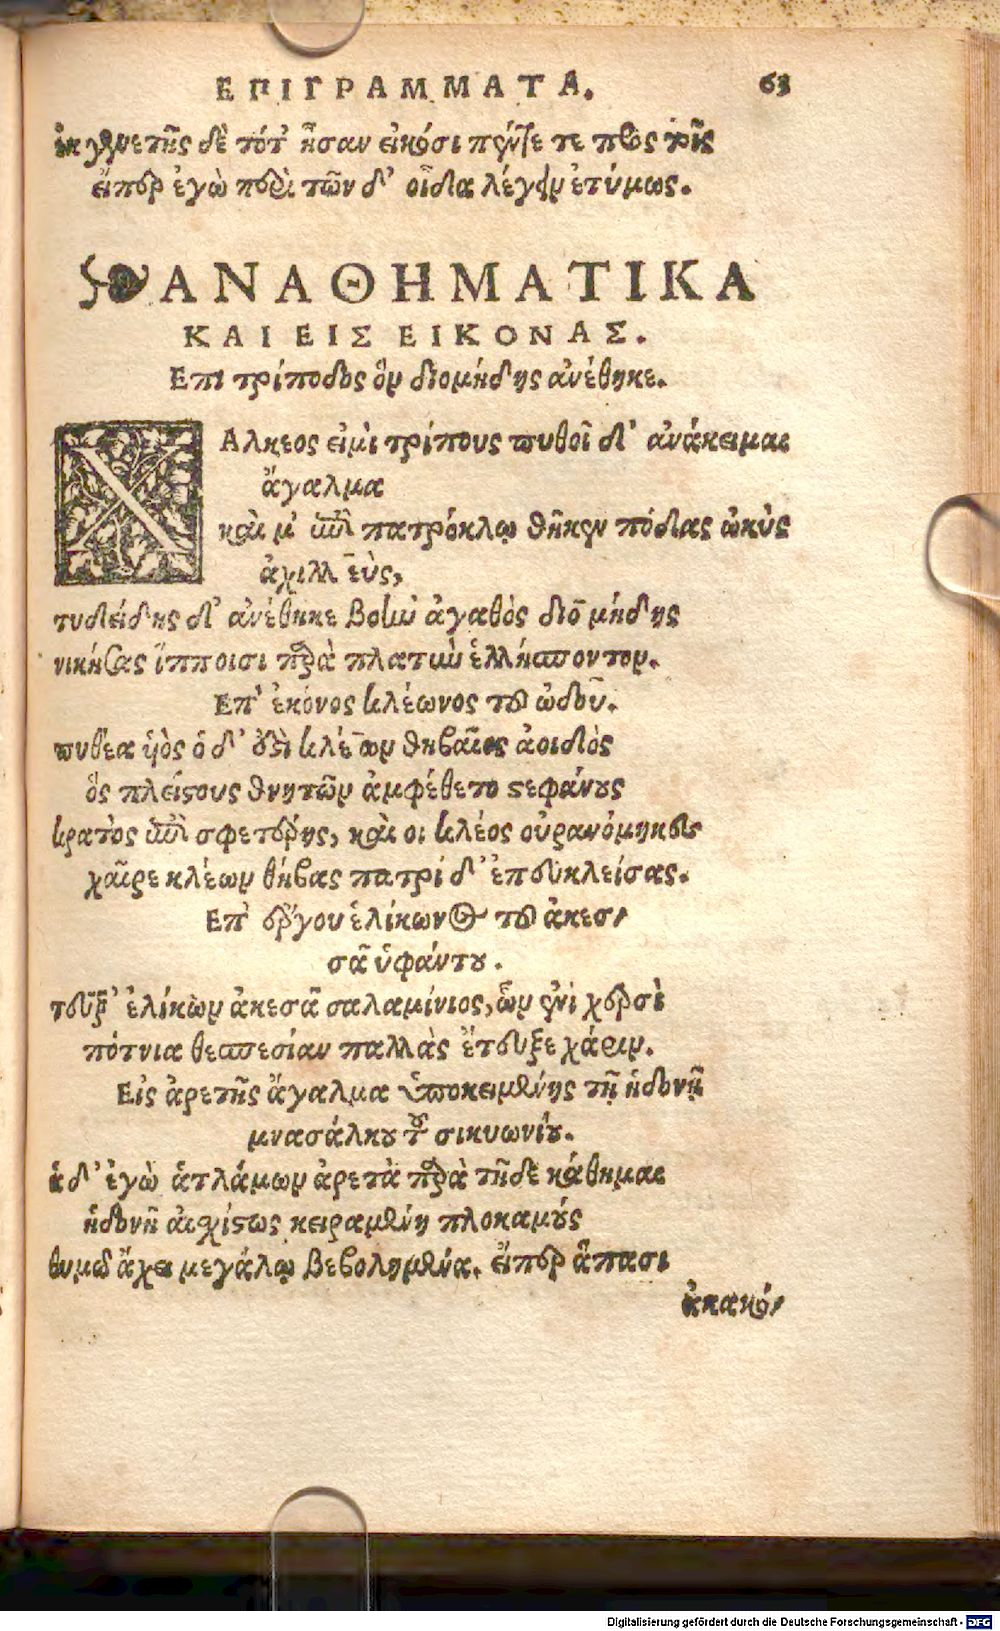 ΕΠΙΓΡΑΜΜΑΤΑ. 63
ἐκ γενετῆς δὲ τότ' ἦσαν εἰκόσι πέντε τε πρὸς τρὶς
εἴπερ ἐγὼ περὶ τῶν δ' οἶδα λέγειν ἐτύμως.
ΑΝΑΘΗΜΑΤΙΚΑ
ΚΑΙ ΕΙΣ ΕΙΚΟΝΑΣ.
Επι τρίποδος ὃν διομήδης ἀνέθηκε.
ΧΑλκεος εἰμὶ τρίπους πυθοῖ δ' ἀνάκειμαι
ἄγαλμα
καὶ μ' ἐπὶ πατρόκλῳ θῆκεν πόδας ὠκὺς
ἀχιλλεὺς,
τυδείδης δ' ἀνέθηκε βοὴν ἀγαθὸς διομήδης
νικήσας ἵπποισι παρὰ πλατὺν ἑλλήσποντον.
Επ' ἐκόνος κλέωνος τοῦ ὠδοῦ.
πυθέα ὑὸς ὁ δ' ἐστὶ κλέων θηβαῖος ἀοιδὸς
ὃς πλείστους θνητῶν ἀμφέθετο στεφάνους
κρατὸς ἐπὶ σφετέρης, καὶ οἱ κλέος οὐρανόμηκες
χαῖρε κλέων θήβας πατρίδ' ἐπευκλείσας.
Επ' ἔργου ἑλίκωνος τοῦ ἀκεσι
σᾶ ὑφάντου.
τεῦξ' ἑλίκων ἀκεσᾶ σαλαμίνιος, ὧν ἐνὶ χερσὶ
πότνια θεσπεσίαν παλλὰς ἔτευξε χάριν.
Εἰς ἀρετῆς ἄγαλμα ὑποκειμένης τῇ ἡδονῇ
μνασάλκου τοῦ σικυωνίου.
ἁ δ' ἐγὼ ἁ τλάμων ἀρετὰ παρὰ τῇδε κάθημαι
ἡδονῇ αἰσχίστως κειραμένη πλοκαμούς
θυμὸν ἄχει μεγάλῳ βεβολημένα. εἴπερ ἅπασι
ἁ κακό-
Digitalisierung gefördert durch die Deutsche Forschungsgemeinschaft - DFG